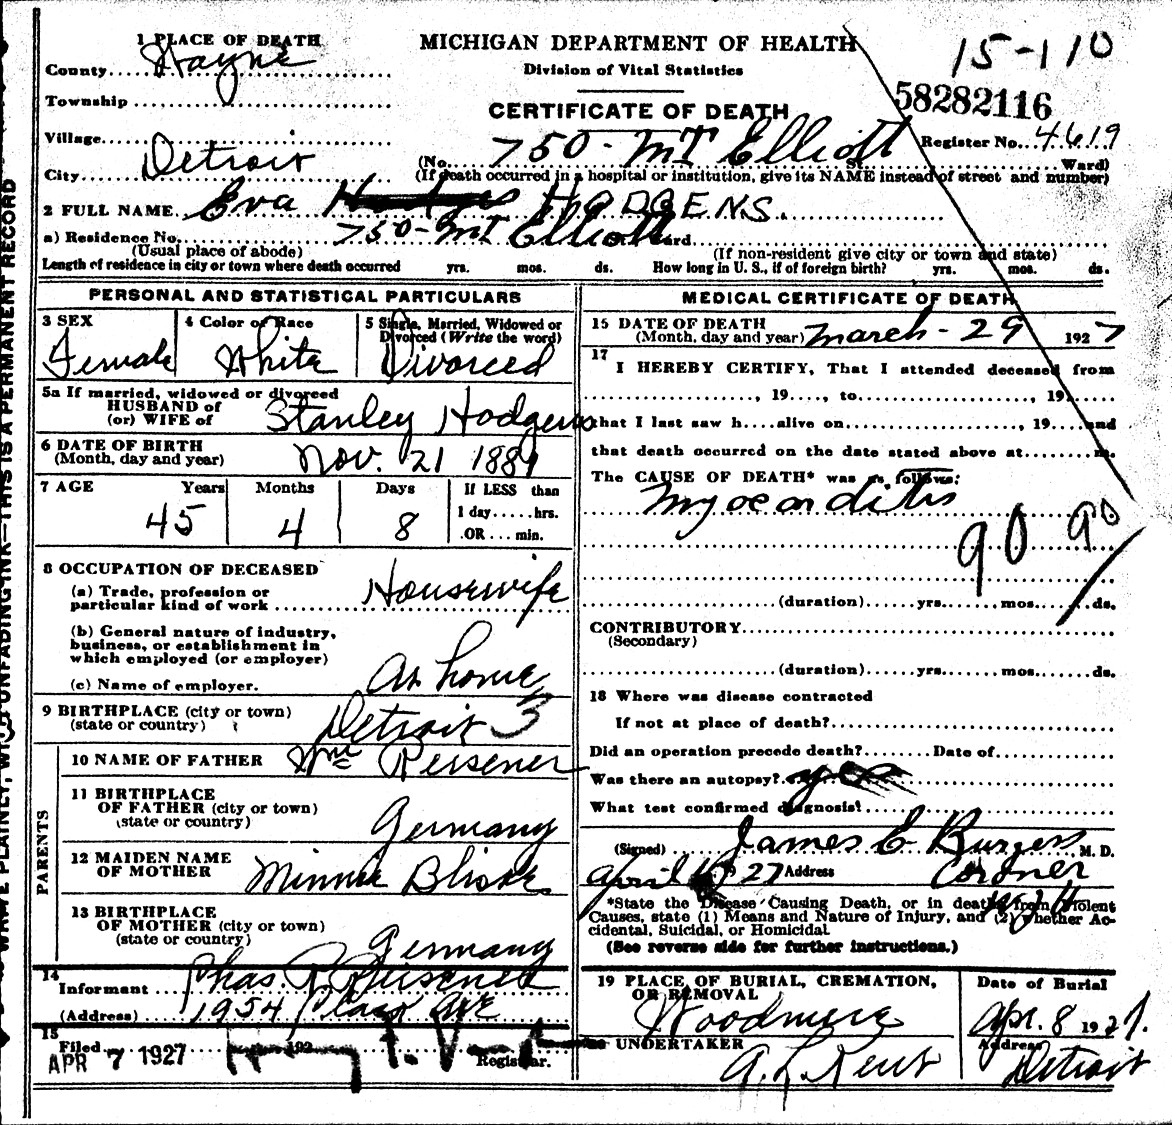 1 PLACE OF DEATH
County Wayne
Township
Village
City Detroit
MICHIGAN DEPARTMENT OF HEALTH
Division of Vital Statistics
CERTIFICATE OF DEATH
15-110
58282116
Register No. 4619
(No. 750-MT Elliott St. Ward)
(If death occurred in a hospital or institution, give its NAME instead of street and number)
2 FULL NAME Eva HODGENS.
a) Residence No. 750-MT Elliott Ward
(Usual place of abode) (If non-resident give city or town and state)
Length of residence in city or town where death occurred yrs. mos. ds. How long in U. S., if of foreign birth? yrs. mos. ds.
PERSONAL AND STATISTICAL PARTICULARS
3 SEX
Female
4 Color or Race
White
5 Single, Married, Widowed or
Divorced (Write the word)
Divorced
5a If married, widowed or divorced
HUSBAND of
(or) WIFE of Stanley Hodgens
6 DATE OF BIRTH
(Month, day and year) Nov. 21 1881
7 AGE Years Months Days If LESS than
1 day.....hrs.
OR...min.
45 4 8
8 OCCUPATION OF DECEASED
(a) Trade, profession or
particular kind of work Housewife
(b) General nature of industry,
business, or establishment in
which employed (or employer)
(c) Name of employer. At home
9 BIRTHPLACE (city or town)
(state or country) Detroit 3
PARENTS
10 NAME OF FATHER Wm Reisener
11 BIRTHPLACE
OF FATHER (city or town)
(state or country) Germany
12 MAIDEN NAME
OF MOTHER Minnie
13 BIRTHPLACE
OF MOTHER (city or town)
(state or country) Germany
14
Informant Chas. R. Reisener
(Address) 1954 Ave
15
Filed APR 7 1927 192
Registrar.
MEDICAL CERTIFICATE OF DEATH
15 DATE OF DEATH
(Month, day and year) March-29 1927
17
I HEREBY CERTIFY, That I attended deceased from
, 19...., to , 19
that I last saw h....alive on , 19 and
that death occurred on the date stated above at m.
The CAUSE OF DEATH* was as follows:
Myocarditis
90 90
(duration) yrs. mos. ds.
CONTRIBUTORY
(Secondary)
(duration) yrs. mos. ds.
18 Where was disease contracted
If not at place of death?
Did an operation precede death? Date of
Was there an autopsy? yes
What test confirmed diagnosis?
(Signed) James E Burgess M. D.
April 27 Address Coroner
*State the Disease Causing Death, or in deaths from Violent
Causes, state (1) Means and Nature of Injury, and (2) whether Ac-
cidental, Suicidal, or Homicidal
(See reverse side for further instructions.)
19 PLACE OF BURIAL, CREMATION,
OR REMOVAL
Woodmere
Date of Burial
Apr. 8 1927.
UNDERTAKER
A. L. Kent
Address
Detroit
WRITE PLAINLY, WITH UNFADING INK—THIS IS A PERMANENT RECORD